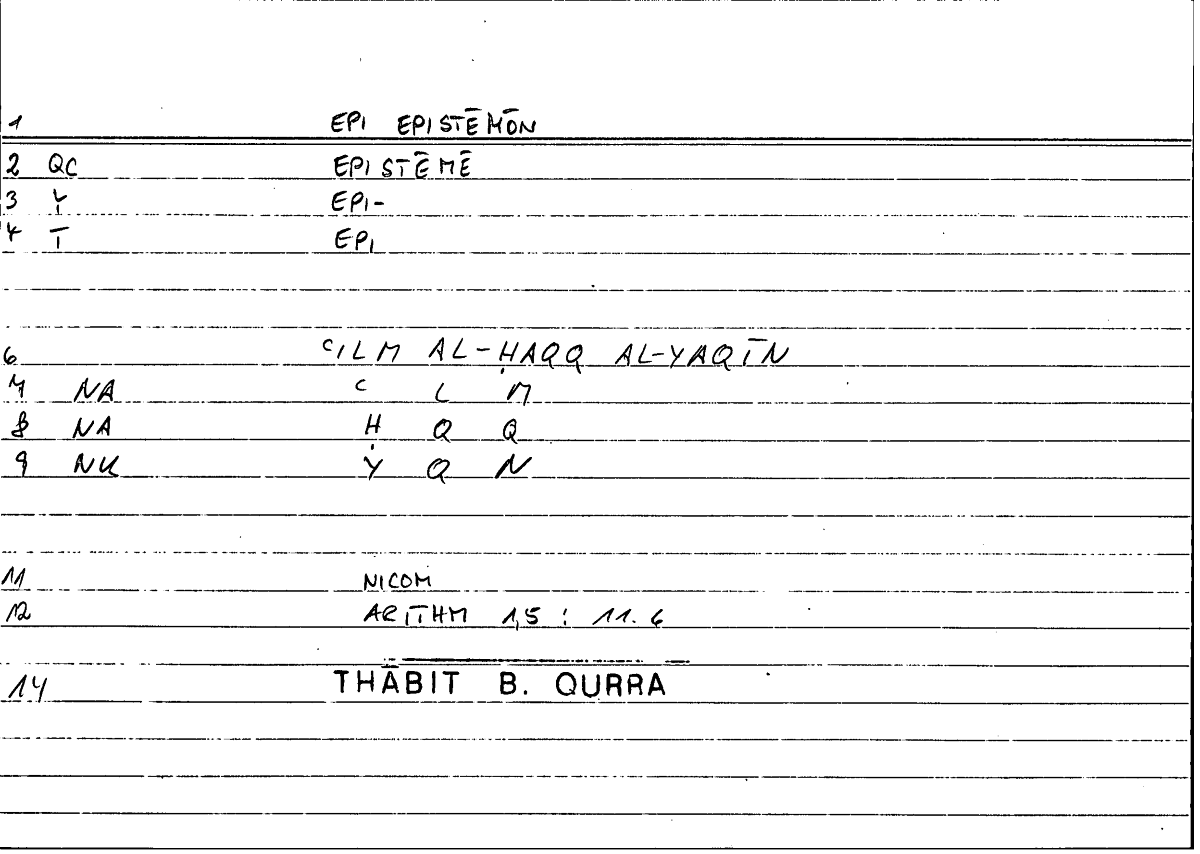 1 EPI EPISTĒMŌN
2 QC EPISTĒMĒ
3 Y EPI-
4 T EPI
6 ʿILM AL-ḤAQQ AL-YAQĪN
7 NA ʿ L M
8 NA Ḥ Q Q
9 NK Y Q N
11 NICOM
12 ARITHM 1,5 : 11.6
14 THĀBIT B. QURRA